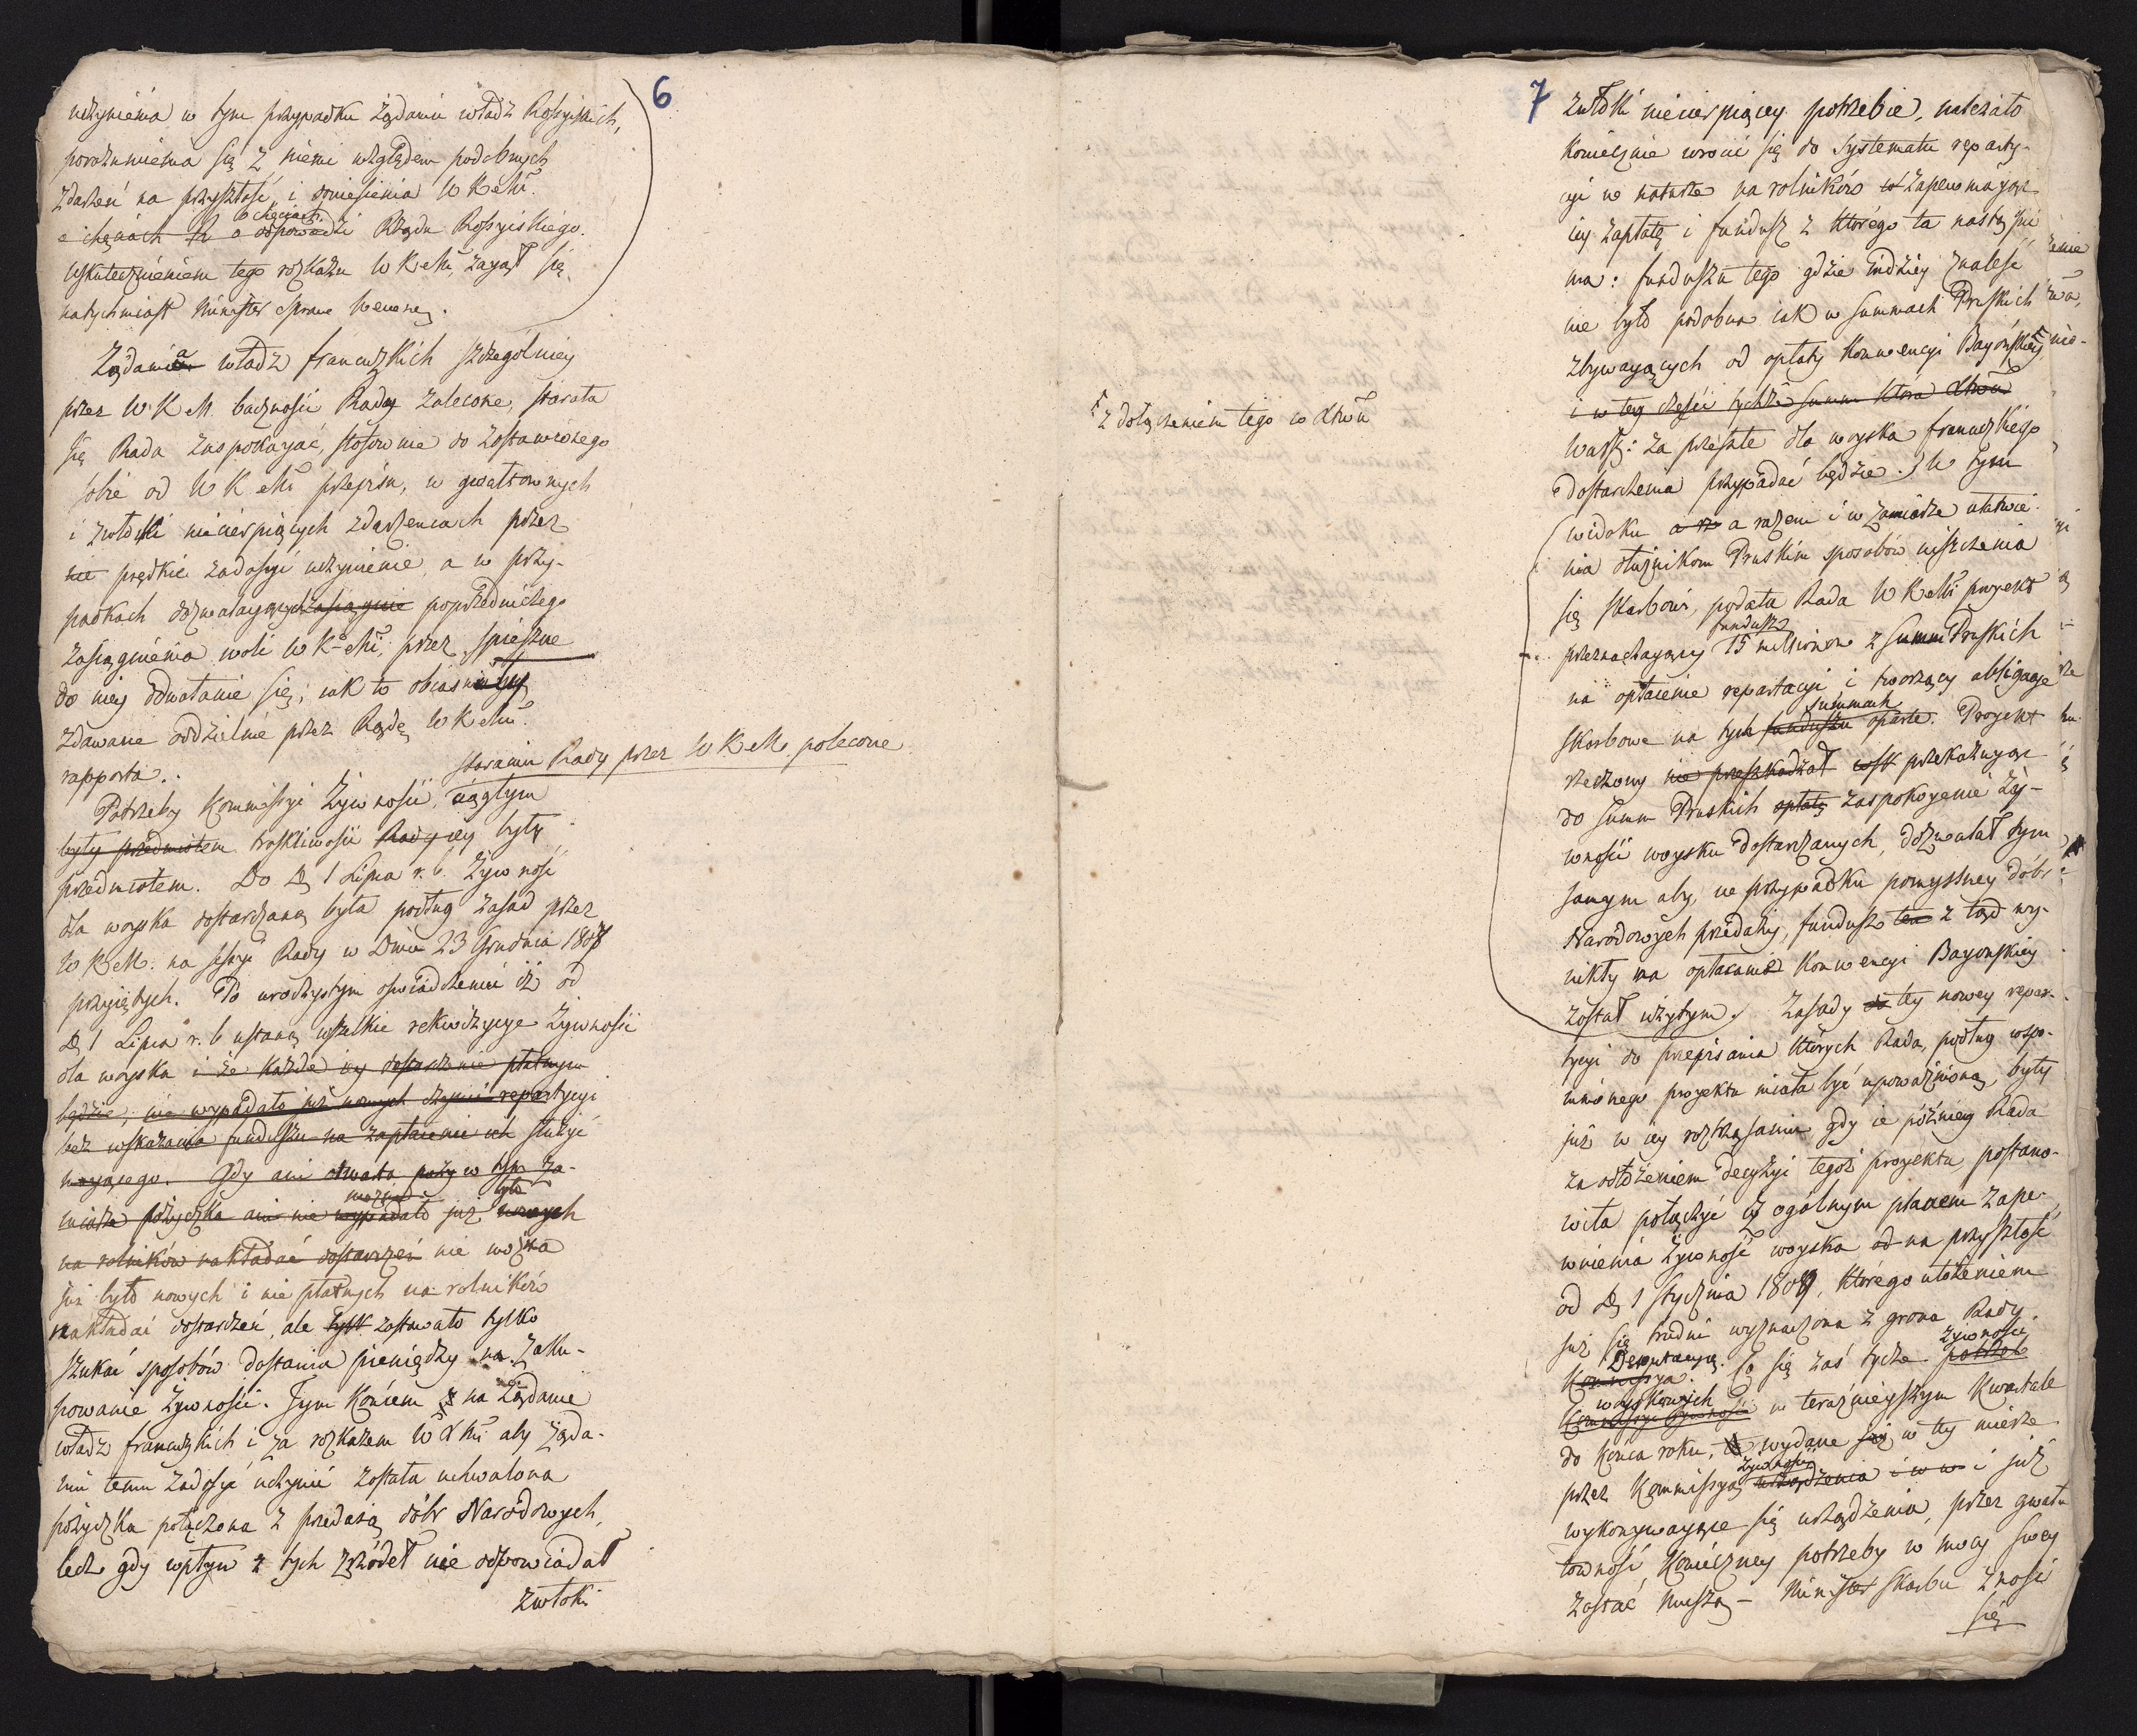 6
uczynienia w tym przypadku żądaniu władz Rossyiskich,
porozumienia się z niemi względem podobnych
zdarzeń na przyszłość, i doniesienia W K Mci.
o chęciach
o chęciach o odpowiedzi Rządu Rossyiskiego.
Uskutecznieniem tego rozkazu W K Mci, zaiął się
natychmiast Minister Spraw Wewnę.
Żądania władz francuzkich szczególniey
przez W K M. baczności Rady zalecone, starała
się Rada zaspokaiać, stosownie do zostawionego
sobie od W K Mci przepisu, w gwałtownych
i zwłoki niecierpiących zdarzeniach przez
nie prędkie zadosyć uczynienie, a w przy-
padkach dozwalaiących zasiągnie poprzedniczego
zasiągnienia woli W K Mci, przez spieszne
do niey odwołanie się, iak to obiaśniaią
zdawane oddzielnie przez Radę W K Mci
rapporta.
staraniu Rady przez W K M. polecone
Potrzeby Kommissyi Żywności, ciągłym
były przedmiotem troskliwości Rady iey były
przedmiotem. Do D. 1 Lipca r. b. Żywność
dla woyska dostarczaną była podług zasad przez
W K M. na sessyi Rady w Dniu 23 Grudnia 1807
przyiętych. Po uroczystym oświadczeniu iż od
D. 1 Lipca r. b ustaną wszelkie rekwizycye Żywności
dla woyska i że każde iey dostarczenie płatnym
będzie, nie wypadało już nowych czynić repartycyi
bez wskazania funduszu na zapłacenie ich służyć
maiącego. Gdy ani otwarta w tym za-
miarze pożyczka ani nie wypadało już nowych
można było
na rolników nakładać dostarczeń nie można
już było nowych i nie płatnych na rolników
nakładać dostarczeń, ale tylk zostawało tylko
szukać sposobów dostania pieniędzy na zaku-
powanie Żywności. Tym końcem na żądanie
władz francuzkich i za rozkazem W K Mci aby żąda-
niu temu zadosyć uczynić została uchwalona
pożyczka połączona z przedażą dóbr Narodowych,
lecz gdy wpływ z tych zrzódeł nie odpowiadał
zwłoki
z dołączeniem tego co Xtwu
7
zwłoki niecierpiącey potrzebie, należało
koniecznie wrócić się do Systematu reparty-
cyi w naturze na rolników zapewniaiąc
iey zapłatę i fundusz z którego ta nastąpić
ma: funduszu tego gdzie indziey znaleść
nie było podobna iak w summach Pruskich
zbywaiących od opłaty Konwencyi Bayońskiey
i w tey części tychże summ która Xtwu
Warsz: za przeszłe dla woyska francuzkiego
dostarczenia przypadać będzie. W tym
widoku a razem i w zamiarze ułatwie-
nia dłużnikom Pruskim sposobów uiszczenia
się Skarbowi, podała Rada W K Mci proiekt
fundusz
przeznaczaiący 15 millionów z Summ Pruskich
na opłacenie repartycyi i tworzący obligacye
summach
skarbowe na tych funduszu oparte. Proiekt
rzeczony nie przeszkadzał przekazuiąc
do summ Pruskich opłatę zaspokoienie Ży-
wności woysku dostarczanych, dozwalał tym
samym aby, w przypadku pomyslney dóbr
Narodowych przedaży, fundusz ten z tąd wy-
nikły na opłacanie Konwencyi Bayonskiey
został użytym. Zasady do tey nowey repar-
tycyi do przepisania których Rada, podług wspo-
mnionego proiektu miała być upoważnioną, były
już w iey roztrząsaniu gdy ie późniey Rada
za odłożeniem decyzyi tegoż proiektu postano-
wiła połączyć z ogólnym planem zape-
wnienia Żywność woyska od na przyszłość
od D. 1 Stycznia 1809, którego ułożeniem
już się trudni wyznaczona z grona Rady
Deputacya. Żywności
Kommissya. Co się zaś tycze potrzeb
woyskowych
Kommissyi Żywności w teraźnieyszym kwartale
do końca roku, wydane są w tey mierze
Żywności
przez Kommissyą urządzenia i w w i już
wykonywaiące się urządzenia, przez gwał-
towność konieczney potrzeby w mocy swey
zostać muszą — Minister Skarbu znosi
się